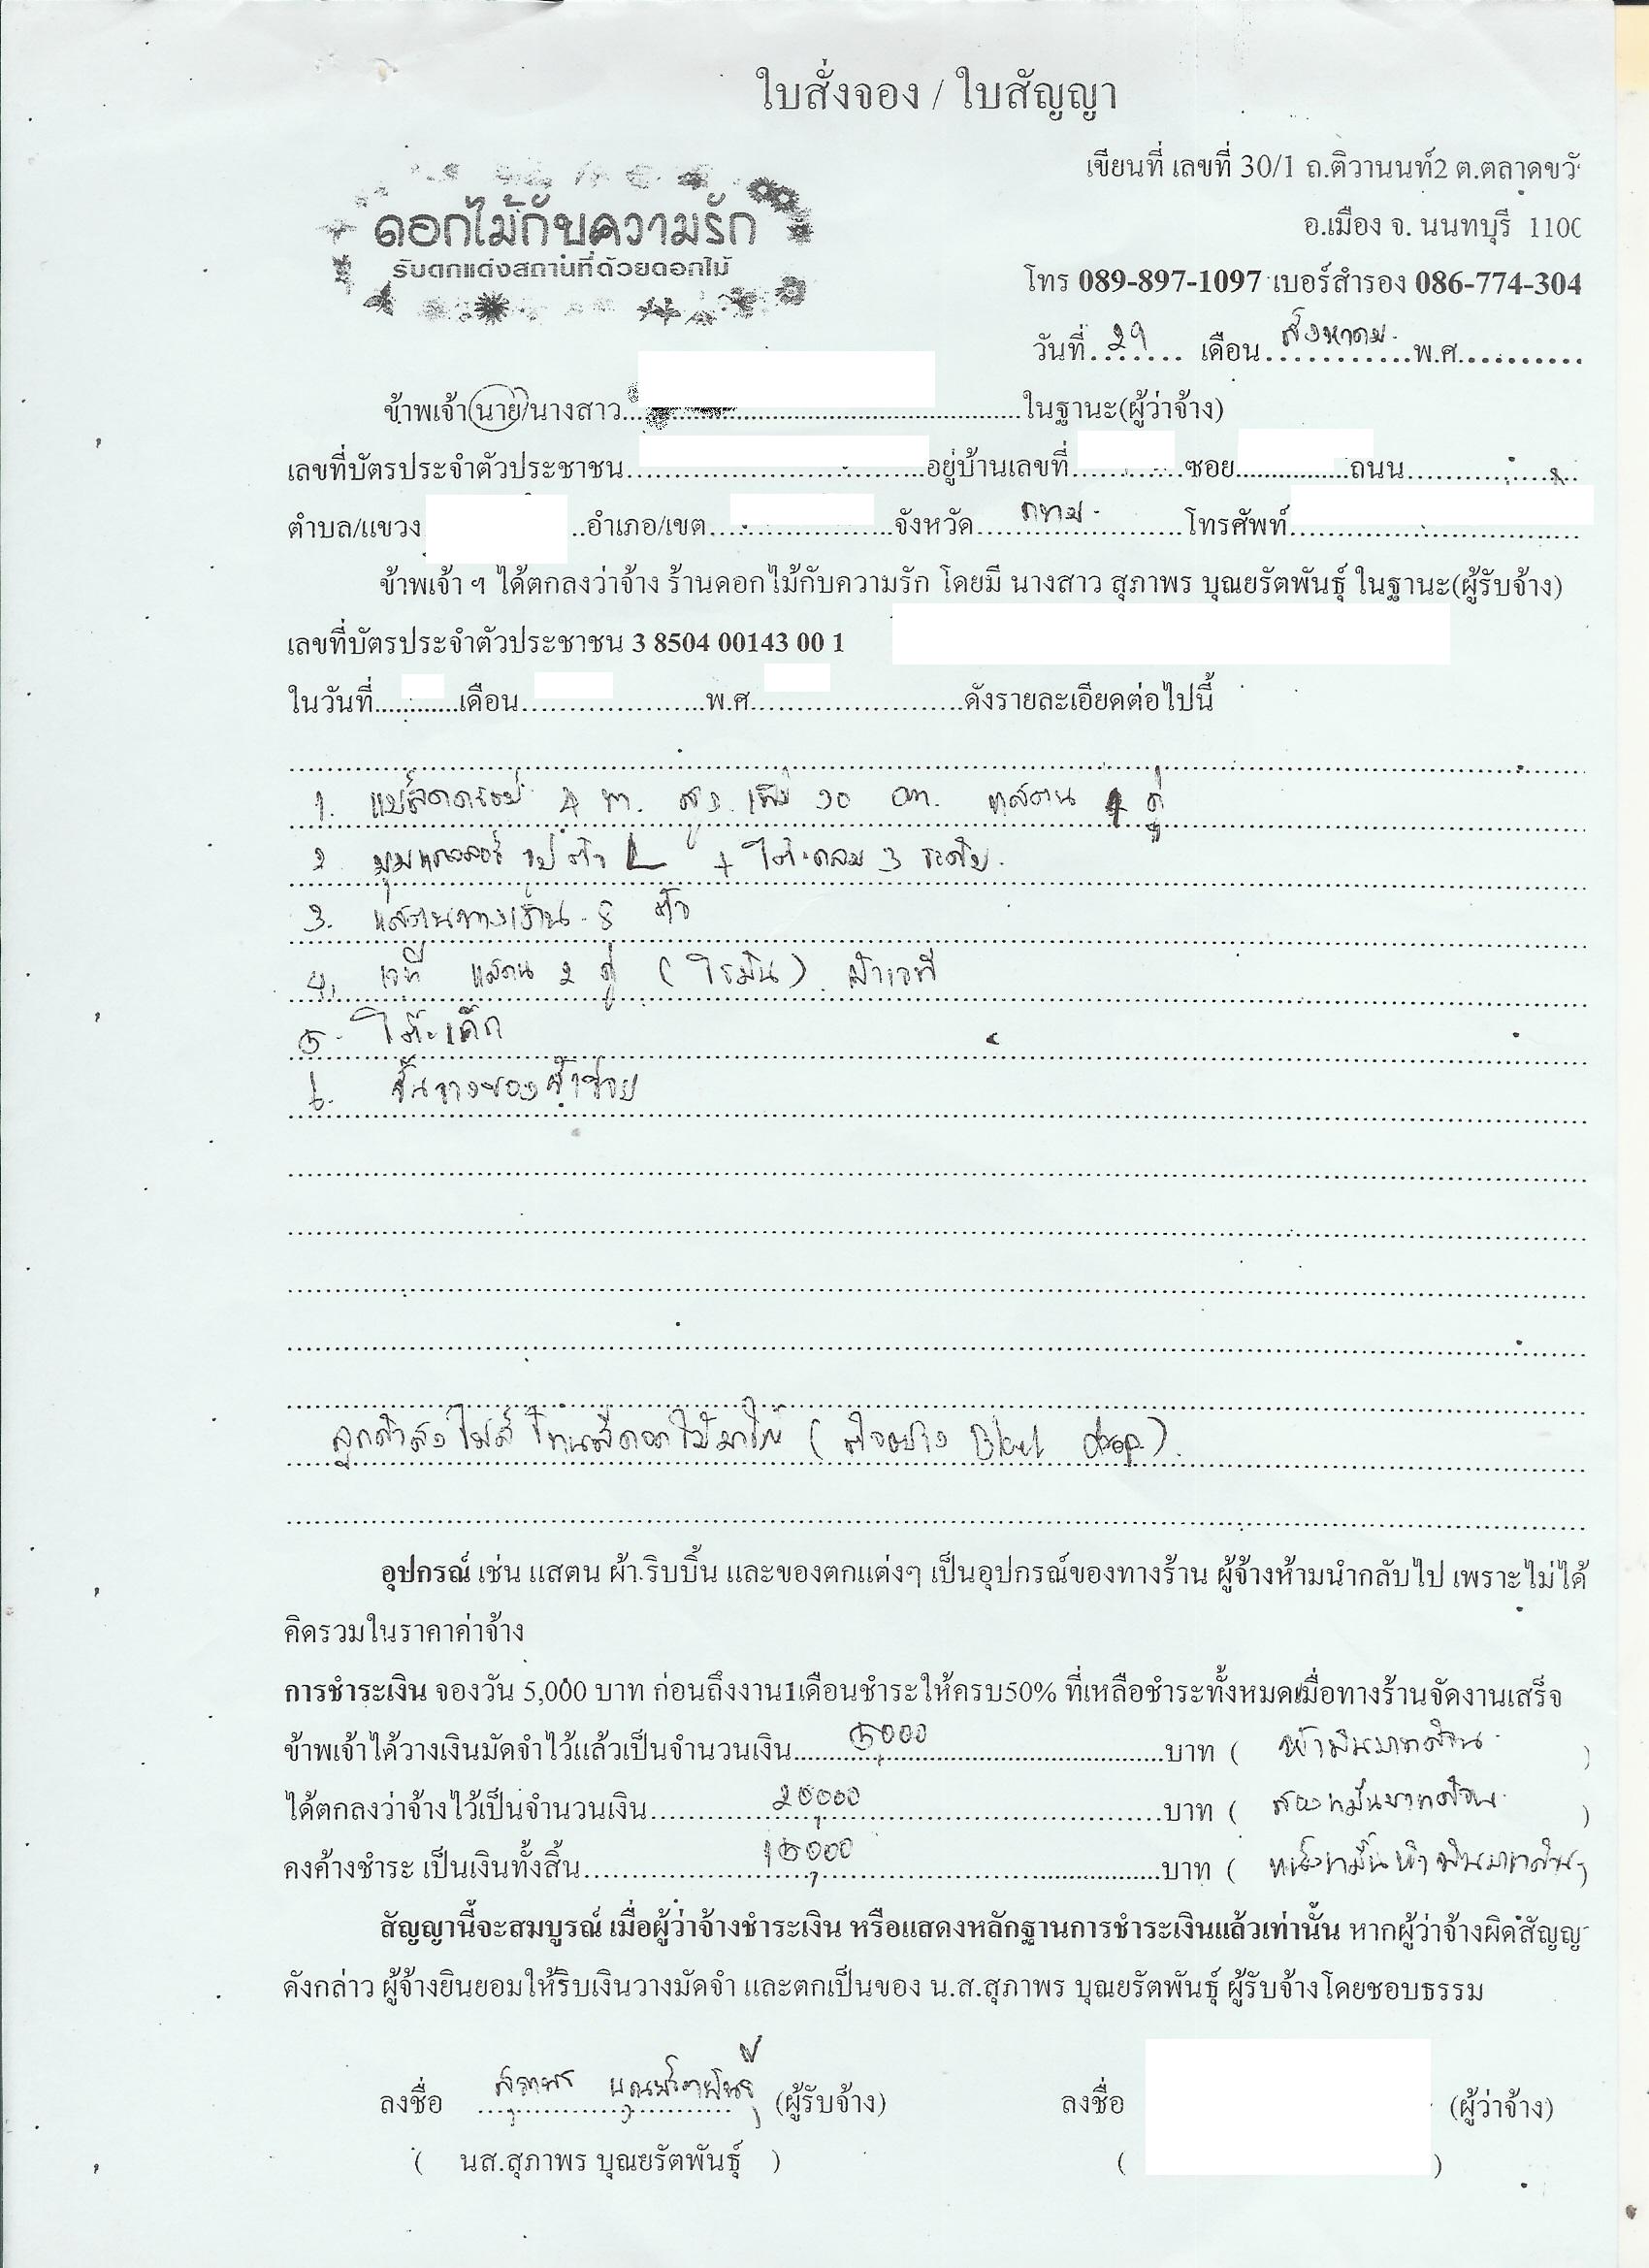 ใบสั่งจอง / ใบสัญญา
เขียนที่ เลขที่ 30/1 ถ.ติวานนท์2 ต.ตลาดขวั
ดอกไม้กับความรัก
รับตกแต่งสถานที่ด้วยดอกไม้
อ.เมือง จ. นนทบุรี 1100
โทร 089-897-1097 เบอร์สำรอง 086-774-304
วันที่ 29 เดือน สิงหาคม พ.ศ.
ข้าพเจ้า นาย/นางสาว ในฐานะ(ผู้ว่าจ้าง)
เลขที่บัตรประจำตัวประชาชน อยู่บ้านเลขที่ ซอย ถนน
ตำบล/แขวง อำเภอ/เขต จังหวัด กทม. โทรศัพท์
ข้าพเจ้า ฯ ได้ตกลงว่าจ้าง ร้านดอกไม้กับความรัก โดยมี นางสาว สุภาพร บุณยรัตพันธุ์ ในฐานะ(ผู้รับจ้าง)
เลขที่บัตรประจำตัวประชาชน 3 8504 00143 00 1
ในวันที่ เดือน พ.ศ. ดังรายละเอียดต่อไปนี้
1. 4 m. สูง เพิ่ม 30 cm. แสตน 4 คู่
2. มุมแกลลอรี่ รูปตัว L + โต๊ะกลม 3 ระดับ.
3. แสตนทางเดิน 8 ตัว
4. เวที แสตน 2 คู่ (โรมัน) ผ้าเวที
5. โต๊ะเค้ก
6. ชั้นวางของชำร่วย
ลูกค้าส่งไฟล์ โทนสีดอกไม้มาให้
อุปกรณ์ เช่น แสตน ผ้า ริบบิ้น และของตกแต่งๆ เป็นอุปกรณ์ของทางร้าน ผู้จ้างห้ามนำกลับไป เพราะไม่ได้
คิดรวมในราคาค่าจ้าง
การชำระเงิน จองวัน 5,000 บาท ก่อนถึงงาน1เดือนชำระให้ครบ50% ที่เหลือชำระทั้งหมดเมื่อทางร้านจัดงานเสร็จ
ข้าพเจ้าได้วางเงินมัดจำไว้แล้วเป็นจำนวนเงิน 5,000 บาท ( ห้าพันบาทถ้วน )
ได้ตกลงว่าจ้างไว้เป็นจำนวนเงิน 20,000 บาท ( สองหมื่นบาทถ้วน )
คงค้างชำระ เป็นเงินทั้งสิ้น 15,000 บาท ( หนึ่งหมื่นห้าพันบาทถ้วน )
สัญญานี้จะสมบูรณ์ เมื่อผู้ว่าจ้างชำระเงิน หรือแสดงหลักฐานการชำระเงินแล้วเท่านั้น หากผู้ว่าจ้างผิดสัญญ
ดังกล่าว ผู้จ้างยินยอมให้ริบเงินวางมัดจำ และตกเป็นของ น.ส.สุภาพร บุณยรัตพันธุ์ ผู้รับจ้างโดยชอบธรรม
ลงชื่อ สุภาพร บุณยรัตพันธุ์ (ผู้รับจ้าง) ลงชื่อ (ผู้ว่าจ้าง)
( นส.สุภาพร บุณยรัตพันธุ์ ) ( )